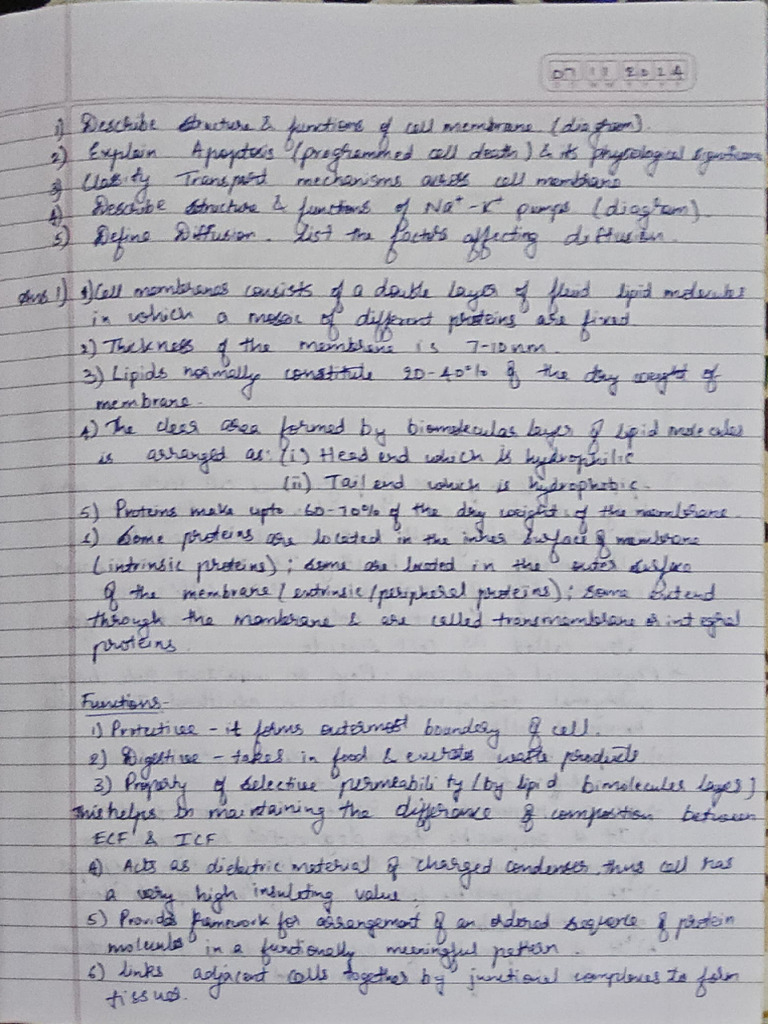 07 12 2024
1) Describe structure & functions of cell membrane. (diagram).
2) Explain Apoptosis (programmed cell death) & its physiological significance
3) Classify Transport mechanisms across cell membrane
4) Describe structure & functions of Na+-K+ pumps (diagram).
5) Define Diffusion. List the factors affecting diffusion.
Ans 1) 1) Cell membranes consists of a double layer of fluid lipid molecules
in which a mosaic of different proteins are fixed.
2) Thickness of the membrane is 7-10nm.
3) Lipids normally constitute 20-40% of the dry weight of
membrane.
4) The clear area formed by biomolecular layer of lipid molecules
is arranged as: (i) Head end which is hydrophilic
(ii) Tail end which is hydrophobic.
5) Proteins make upto 60-70% of the dry weight of the membrane.
6) Some proteins are located in the inner surface of membrane
(intrinsic proteins); some are located in the outer surface
of the membrane (extrinsic/peripheral proteins); some extend
through the membrane & are called transmembrane or integral
proteins.
Functions-
1) Protective - it forms outermost boundary of cell.
2) Digestive - takes in food & excretes waste products
3) Property of selective permeability (by lipid bimolecules layer)
This helps in maintaining the difference of composition between
ECF & ICF
4) Acts as dielectric material of charged condenser, thus cell has
a very high insulating value.
5) Provides framework for arrangement of an ordered sequence of protein
molecules in a functionally meaningful pattern.
6) Links adjacent cells together by junctional complexes to form
tissues.